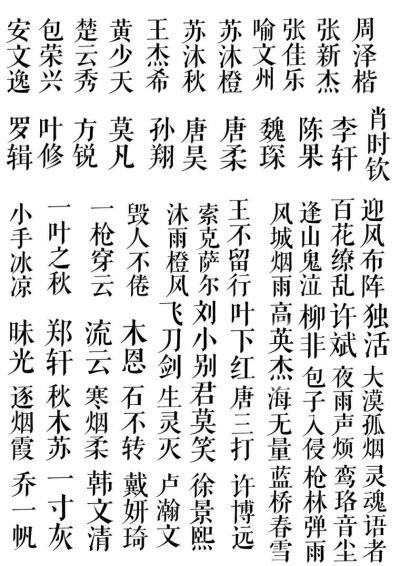 安文逸
包荣兴
楚云秀
黄少天
王杰希
苏沐秋
苏沐橙
喻文州
张佳乐
张新杰
周泽楷
罗辑
叶修
方锐
莫凡
孙翔
唐昊
唐柔
魏琛
陈果
李轩
肖时钦
小手冰凉
一叶之秋
一枪穿云
毁人不倦
沐雨橙风
索克萨尔
王不留行
风城烟雨
逢山鬼泣
百花缭乱
迎风布阵
昧光
郑轩
流云
木恩
飞刀剑
刘小别
叶下红
高英杰
柳非
许斌
独活
逐烟霞
秋木苏
寒烟柔
石不转
生灵灭
君莫笑
唐三打
海无量
包子入侵
夜雨声烦
大漠孤烟
乔一帆
一寸灰
韩文清
戴妍琦
卢瀚文
徐景熙
许博远
蓝桥春雪
枪林弹雨
鸾珞音尘
灵魂语者